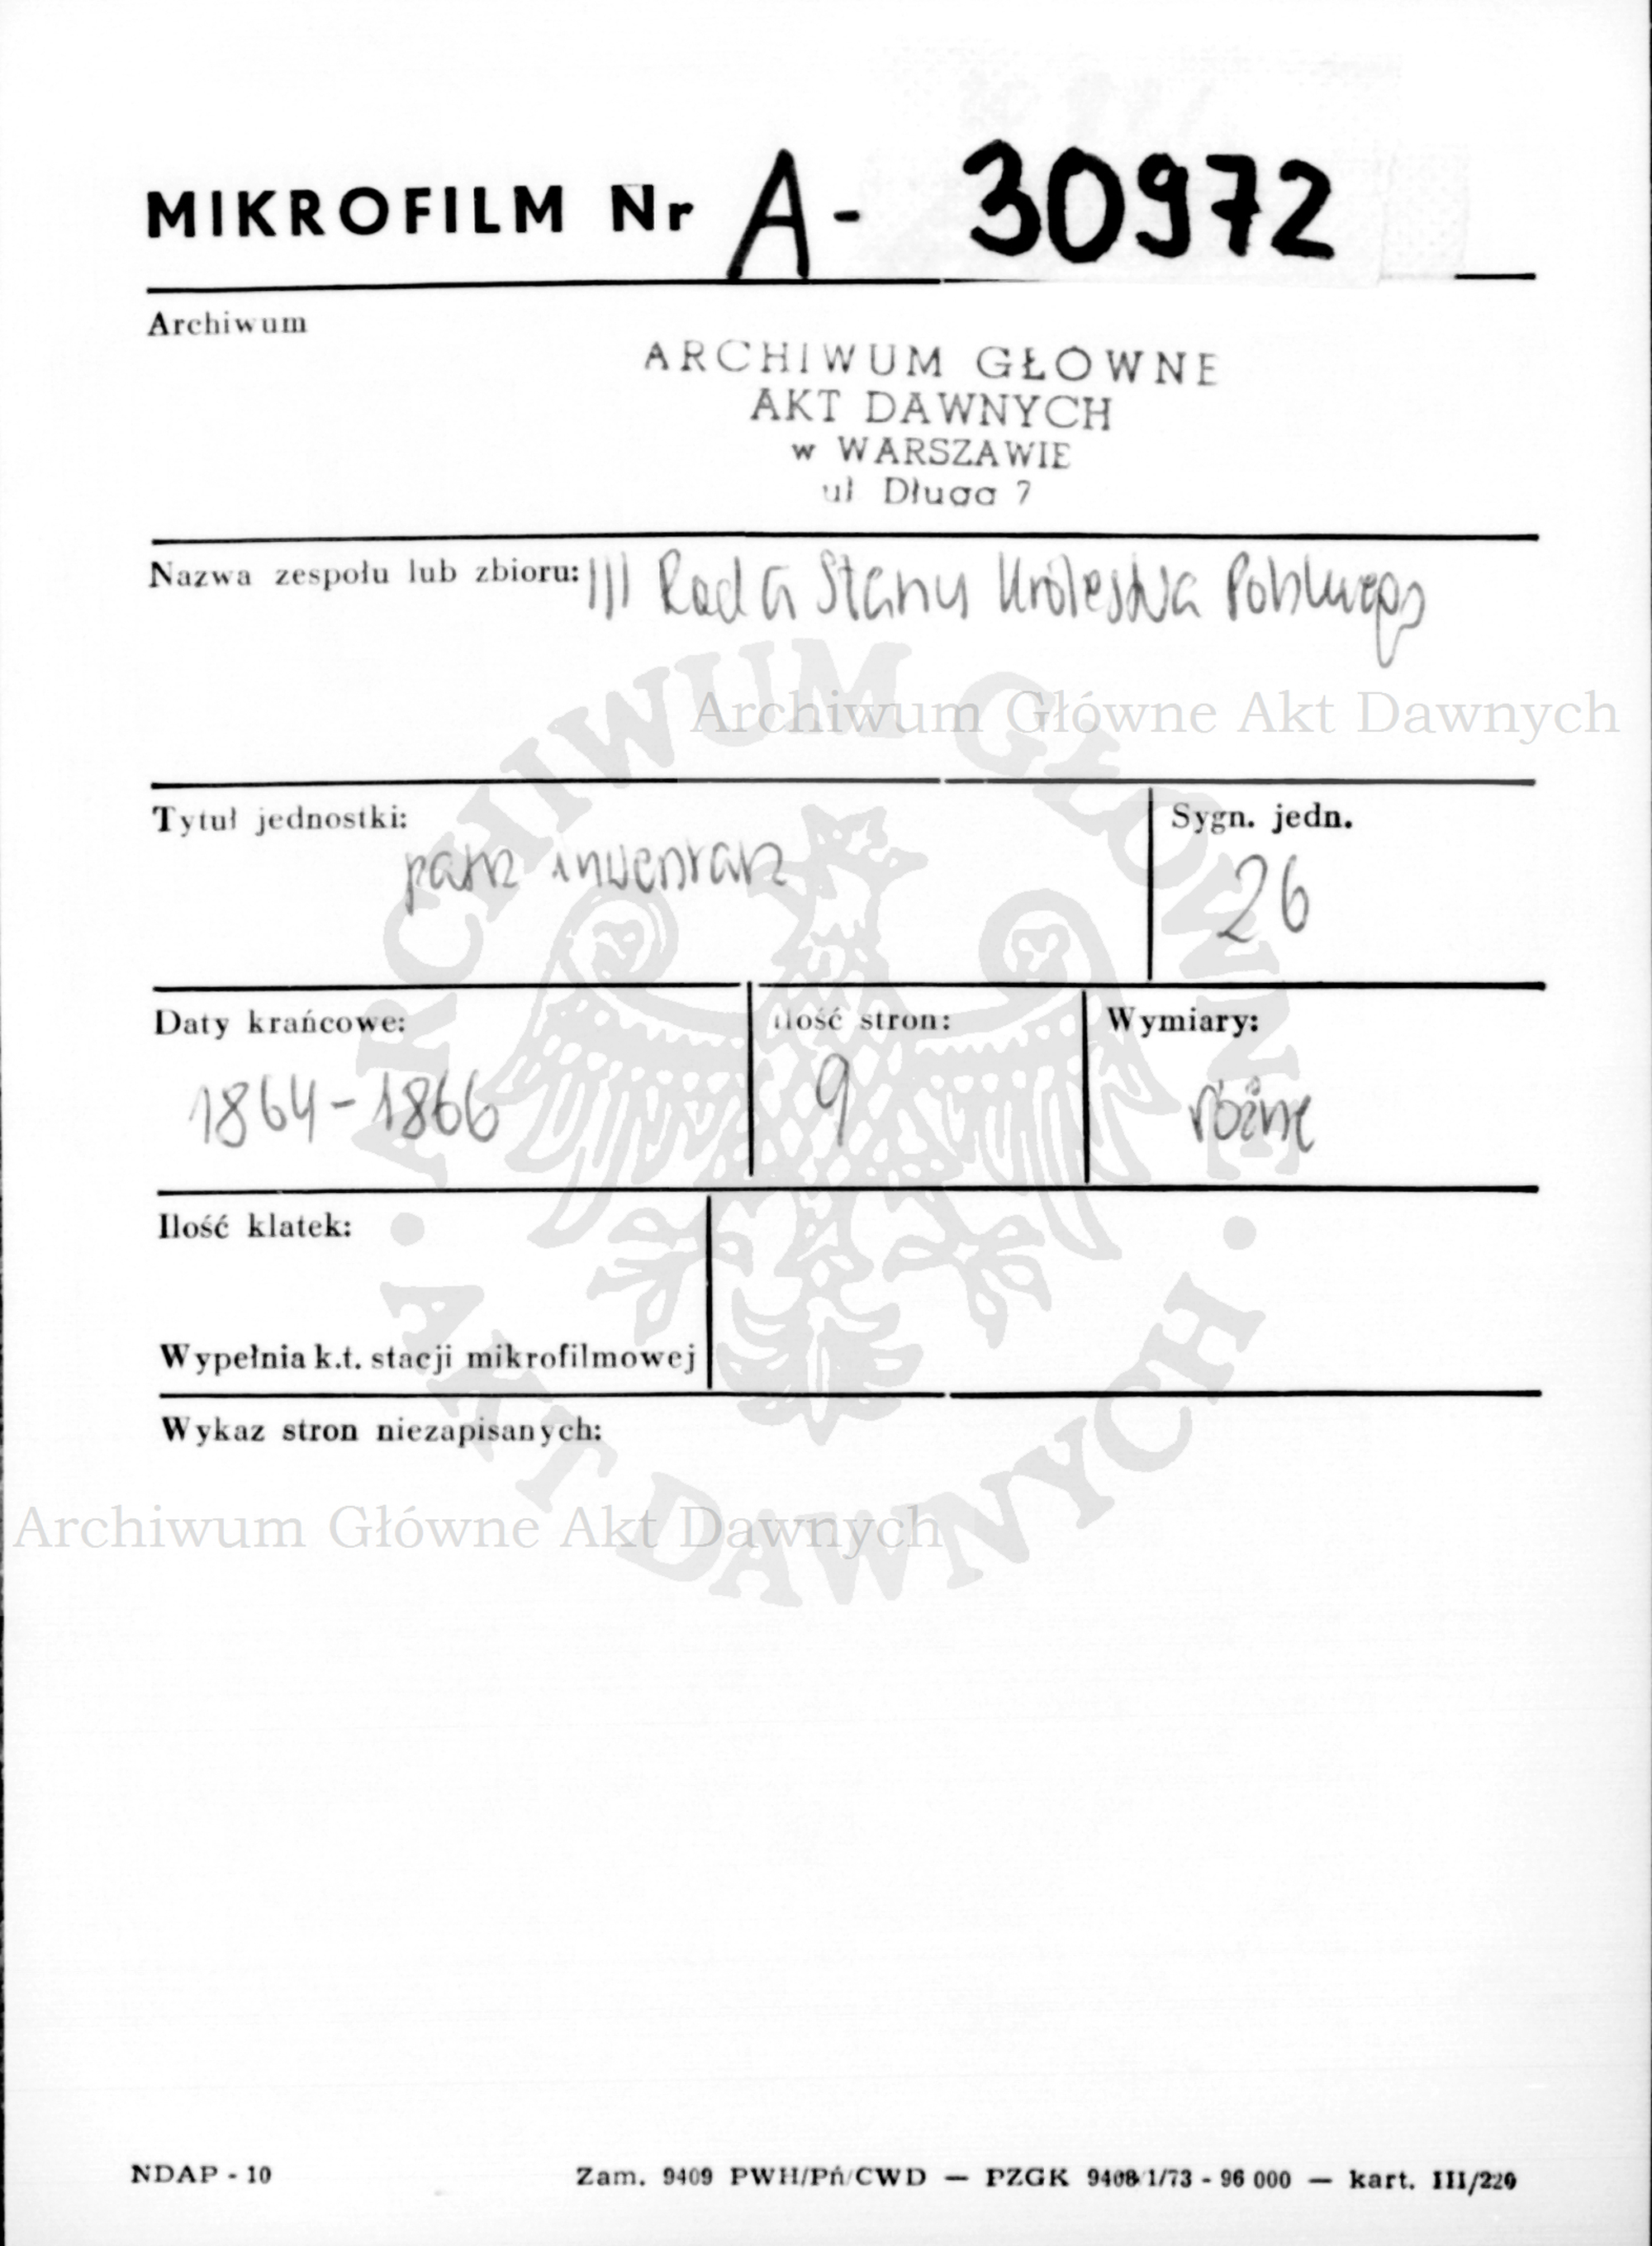 MIKROFILM Nr A- 30972
Archiwum
ARCHIWUM GŁÓWNE
AKT DAWNYCH
w WARSZAWIE
ul Długa 7
Nazwa zespołu lub zbioru: III Rada Stanu Królestwa Polskiego
Archiwum Główne Akt Dawnych
Tytuł jednostki:
patrz inwentarz
Sygn. jedn.
26
Daty krańcowe:
1864-1866
Ilość stron:
9
Wymiary:
różne
Ilość klatek:
Wypełnia k.t. stacji mikrofilmowej
Wykaz stron niezapisanych:
Archiwum Główne Akt Dawnych
ARCHIWUM GŁÓWNE · AKT DAWNYCH ·
NDAP - 10
Zam. 9409 PWH/Pń/CWD — PZGK 9408/1/73 - 96 000 — kart. III/220